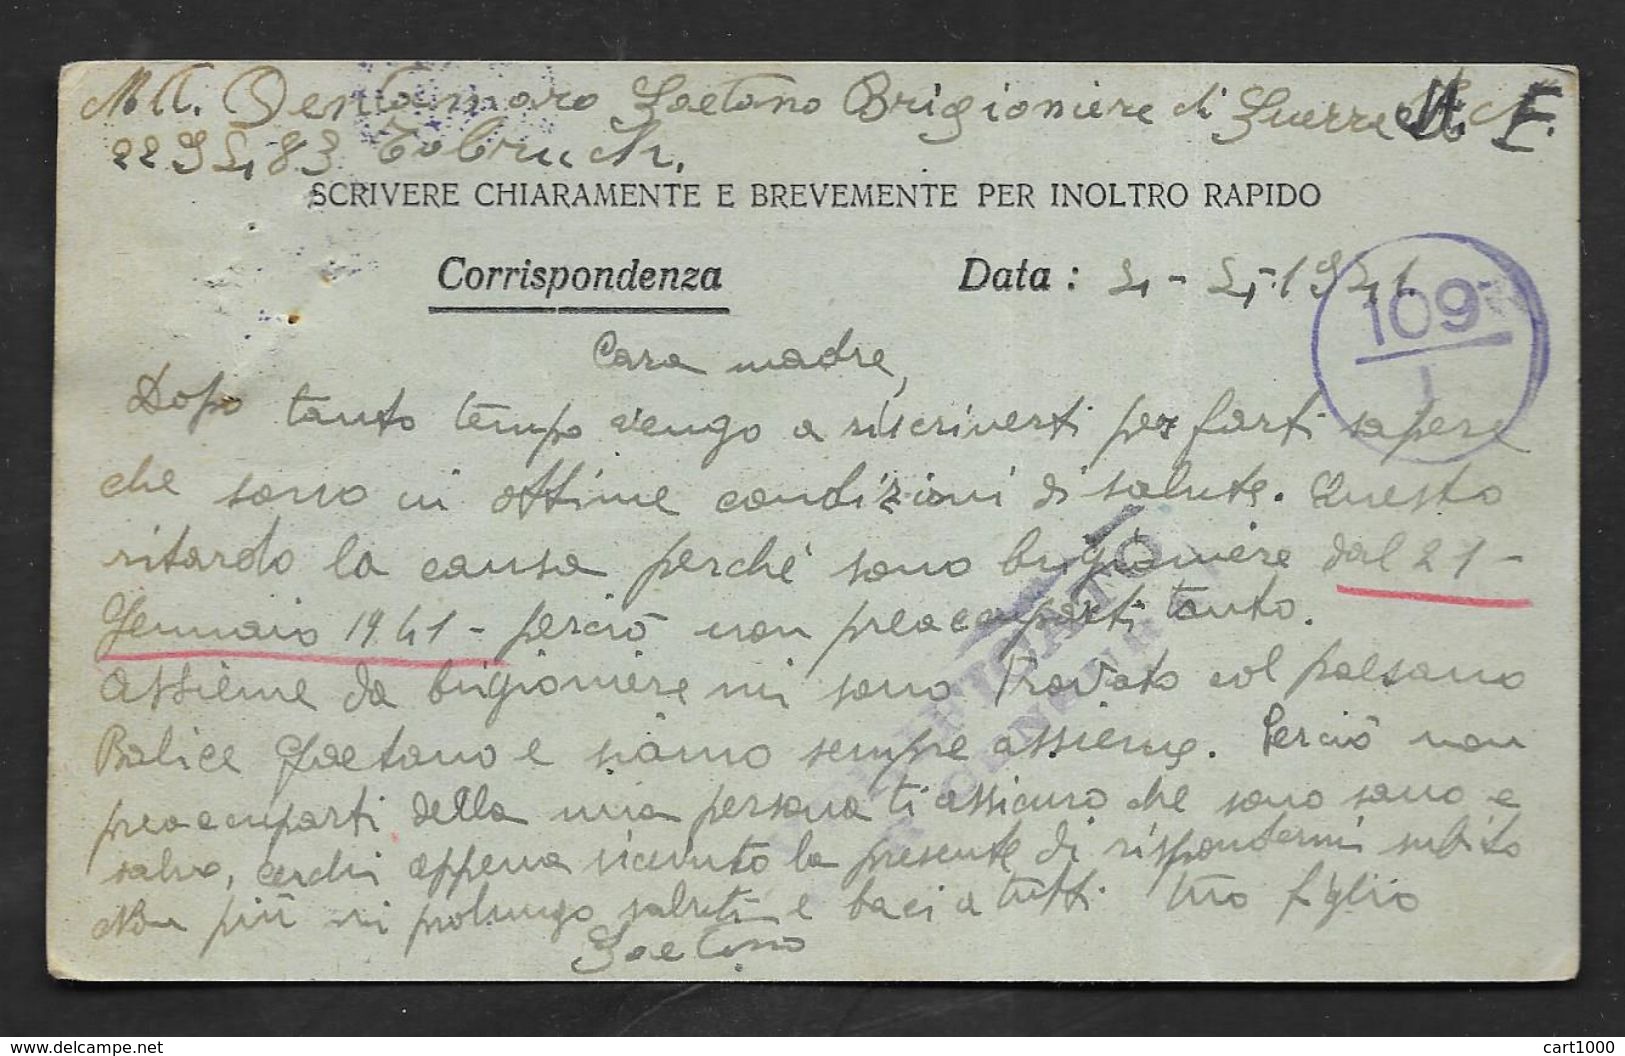 Dentamaro Gaetano Brigioniere di Guerra M. E.
229483 Tobruch.
SCRIVERE CHIARAMENTE E BREVEMENTE PER INOLTRO RAPIDO
Corrispondenza Data : 4-4-1941.
109
1
Cara madre,
Dopo tanto tempo vengo a riscriverti per farti sapere
che sono in ottime condizioni di salute. Questo
ritardo la causa perché sono brigioniere dal 21-
Gennaio 1941- perciò non preacuparti tanto.
assieme da brigioniere mi sono trovato col paesano
Balice Gaetano e siamo sempre assieme. Perciò non
preacuparti della mia persona ti assicuro che sono sano e
salvo, cerchi appena ricevuto la presente di rispondermi subito
Non più mi prolungo saluti e baci a tutti tuo figlio
Gaetano
VERIFICATO
CENSURA
delcampe.net
cart1000